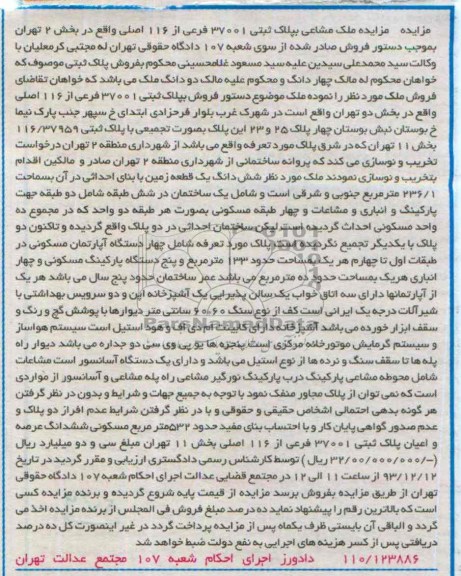 مزایده   مزایده ملک مشاعی بپلاک ثبتی ۳۷۰۰۱ فرعی از ۱۱۶ اصلی واقع در بخش ۲ تهران
بموجب دستور فروش صادر شده از سوی شعبه ۱۰۷ دادگاه حقوقی تهران له مجتبی کرمعلیان با
وکالت سید محمدعلی سیدین علیه سید مسعود غلامحسینی محکوم بفروش پلاک ثبتی موصوف که
خواهان محکوم له مالک چهار دانگ و محکوم علیه مالک دو دانگ ملک می باشد که خواهان تقاضای
فروش ملک مورد نظر را نموده ملک موضوع دستور فروش بپلاک ثبتی ۳۷۰۰۱ فرعی از ۱۱۶ اصلی
واقع در بخش دو تهران واقع است در شهرک غرب بلوار فرحزادی ابتدای خ سپهر جنب پارک نیما
خ بوستان نبش بوستان چهار پلاک ۲۵ و ۲۳ این پلاک بصورت تجمیعی با پلاک ثبتی ۱۱۶/۳۷۹۵۹
بخش ۱۱ تهران که در شرق پلاک مورد تعرفه واقع می باشد از شهرداری منطقه ۲ تهران درخواست
تخریب و نوسازی می کند که پروانه ساختمانی از شهرداری منطقه ۲ تهران صادر و مالکین اقدام
بتخریب و نوسازی نمودند ملک مورد نظر شش دانگ یک قطعه زمین با بنای احداثی در آن بمساحت
۲۳۶/۱ مترمربع جنوبی و شرقی است و شامل یک ساختمان در شش طبقه شامل دو طبقه جهت
پارکینگ و انباری و مشاعات و چهار طبقه مسکونی بصورت هر طبقه دو واحد که در مجموع ده
واحد مسکونی احداث گردیده است لیکن ساختمان احداثی در دو پلاک واقع گردیده و تاکنون دو
پلاک با یکدیگر تجمیع نگردیده اند پلاک مورد تعرفه شامل چهار دستگاه آپارتمان مسکونی در
طبقات اول تا چهارم هر یک بمساحت حدود ۱۳۳ مترمربع و پنج دستگاه پارکینگ مسکونی و چهار
انباری هریک بمساحت حدود ده مترمربع می باشد عمر ساختمان حدود پنج سال می باشد هر یک
از آپارتمانها دارای سه اتاق خواب یک سالن پذیرایی یک آشپزخانه اپن و دو سرویس بهداشتی با
شیرآلات درجه یک ایرانی است کف از نوع سنگ ۶۰*۶۰ سانتی متر دیوارها با پوشش گچ و رنگ و
سقف ابزار خورده می باشد آشپزخانه دارای کابینت ام دی اف و هود استیل است سیستم هواساز
و سیستم گرمایش موتورخانه مرکزی است پنجره ها یو پی وی سی دو جداره می باشد دیوار راه
پله ها تا سقف سنگ و نرده ها از نوع استیل می باشد و دارای یک دستگاه آسانسور است مشاعات
شامل محوطه مشاعی پارکینگ درب پارکینگ نورگیر مشاعی راه پله مشاعی و آسانسور از مواردی
است که نمی توان از پلاک مجاور منفک نمود با توجه به جمیع جهات و شرایط و بدون در نظر گرفتن
هر گونه بدهی احتمالی اشخاص حقیقی و حقوقی و با در نظر گرفتن شرایط عدم افراز دو پلاک و
عدم صدور گواهی پایان کار و با احتساب بنای مفید حدود ۵۳۲متر مربع مسکونی ششدانگ عرصه
و اعیان پلاک ثبتی ۳۷۰۰۱ فرعی از ۱۱۶ اصلی بخش ۱۱ تهران مبلغ سی و دو میلیارد ریال
(-/۳۲/۰۰۰/۰۰۰/۰۰۰ ریال ) توسط کارشناس رسمی دادگستری ارزیابی و مقرر گردید در تاریخ
۹۳/۱۲/۱۲ از ساعت ۱۱ الی ۱۲ در مجتمع قضایی عدالت اجرای احکام شعبه ۱۰۷ دادگاه حقوقی
تهران از طریق مزایده بفروش برسد مزایده از قیمت پایه شروع گردیده و برنده مزایده کسی
است که بالاترین رقم را پیشنهاد نماید ده درصد مبلغ فروش فی المجلس از برنده مزایده اخذ می
گردد و الباقی آن بایستی ظرف یکماه پس از مزایده پرداخت گردد در غیر اینصورت کل ده درصد
دریافتی پس از کسر هزینه های اجرایی به نفع دولت ضبط خواهد شد
۱۱۰/۱۲۳۸۸۶   دادورز اجرای احکام شعبه ۱۰۷ مجتمع عدالت تهران